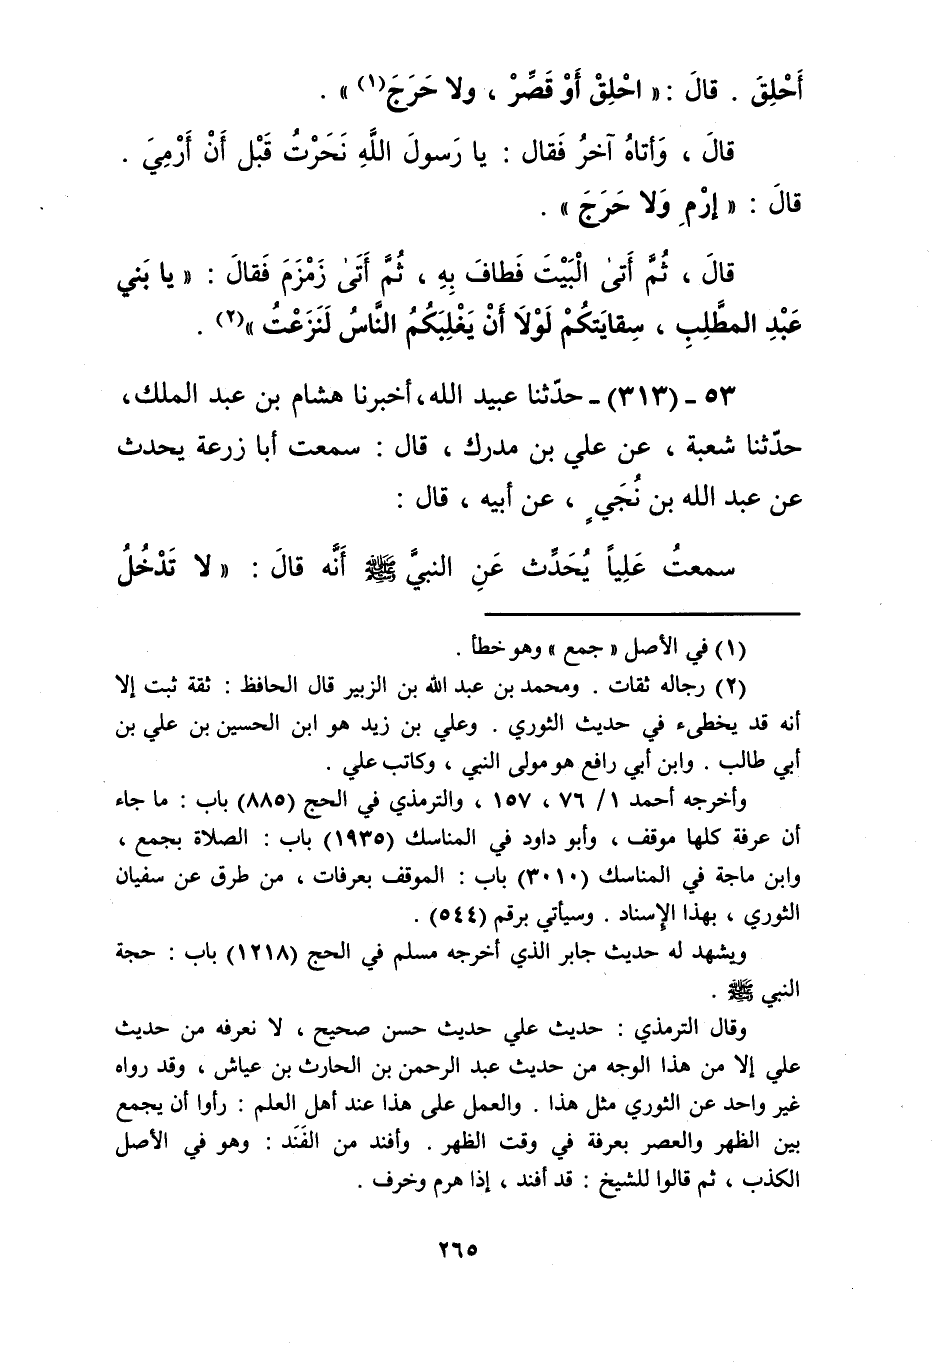 أَحْلِقَ . قالَ : « احْلِقْ أَوْ قَصِّرْ ، ولا حَرَجَ(١) » .
قالَ ، وَأتاهُ آخرُ فَقال : يا رَسولَ اللَّهِ نَحَرْتُ قَبْل أَنْ أَرْمِيَ .
قالَ : « إرْمِ وَلا حَرَجَ » .
قالَ ، ثُمَّ أَتىٰ الْبَيْتَ فَطافَ بِهِ ، ثُمَّ أَتَىٰ زَمْزَمَ فَقالَ : « يا بَني
عَبْدِ المطَّلِبِ ، سِقايَتكُمْ لَوْلَا أَنْ يَغْلِبَكُمُ النَّاسُ لَنَزَعْتُ »(٢) .
٥٣ ـ (٣١٣) ـ حدّثنا عبيد الله، أخبرنا هشام بن عبد الملك،
حدّثنا شعبة ، عن علي بن مدرك ، قال : سمعت أبا زرعة يحدث
عن عبد الله بن نُجَيٍ ، عن أبيه ، قال :
سمعتُ عَلِياً يُحَدِّث عَنِ النبيَّ ﷺ أَنَّه قالَ : « لا تَدْخُلُ
(١) في الأصل « جمع » وهو خطأ .
(٢) رجاله ثقات . ومحمد بن عبد الله بن الزبير قال الحافظ : ثقة ثبت إلا
أنه قد يخطىء في حديث الثوري . وعلي بن زيد هو ابن الحسين بن علي بن
أبي طالب . وابن أبي رافع هو مولى النبي ، وكاتب علي .
وأخرجه أحمد ١/ ٧٦ ، ١٥٧ ، والترمذي في الحج (٨٨٥) باب : ما جاء
أن عرفة كلها موقف ، وأبو داود في المناسك (١٩٣٥) باب : الصلاة بجمع ،
وابن ماجة في المناسك (٣٠١٠) باب : الموقف بعرفات ، من طرق عن سفيان
الثوري ، بهذا الإسناد . وسيأتي برقم (٥٤٤) .
ويشهد له حديث جابر الذي أخرجه مسلم في الحج (١٢١٨) باب : حجة
النبي ﷺ .
وقال الترمذي : حديث علي حديث حسن صحيح ، لا نعرفه من حديث
علي إلا من هذا الوجه من حديث عبد الرحمن بن الحارث بن عياش ، وقد رواه
غير واحد عن الثوري مثل هذا . والعمل على هذا عند أهل العلم : رأوا أن يجمع
بين الظهر والعصر بعرفة في وقت الظهر . وأفند من الفَنَد : وهو في الأصل
الكذب ، ثم قالوا للشيخ : قد أفند ، إذا هرم وخرف .
٢٦٥